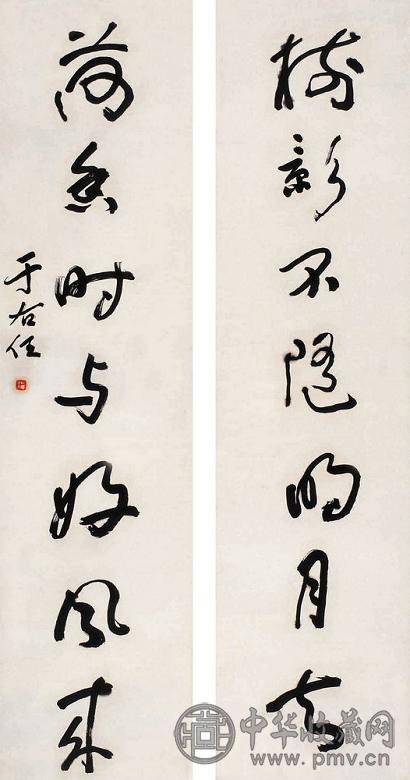 樹影不隨明月去
荷香時與好風來
于右任
中华收藏网
www.pmv.cn